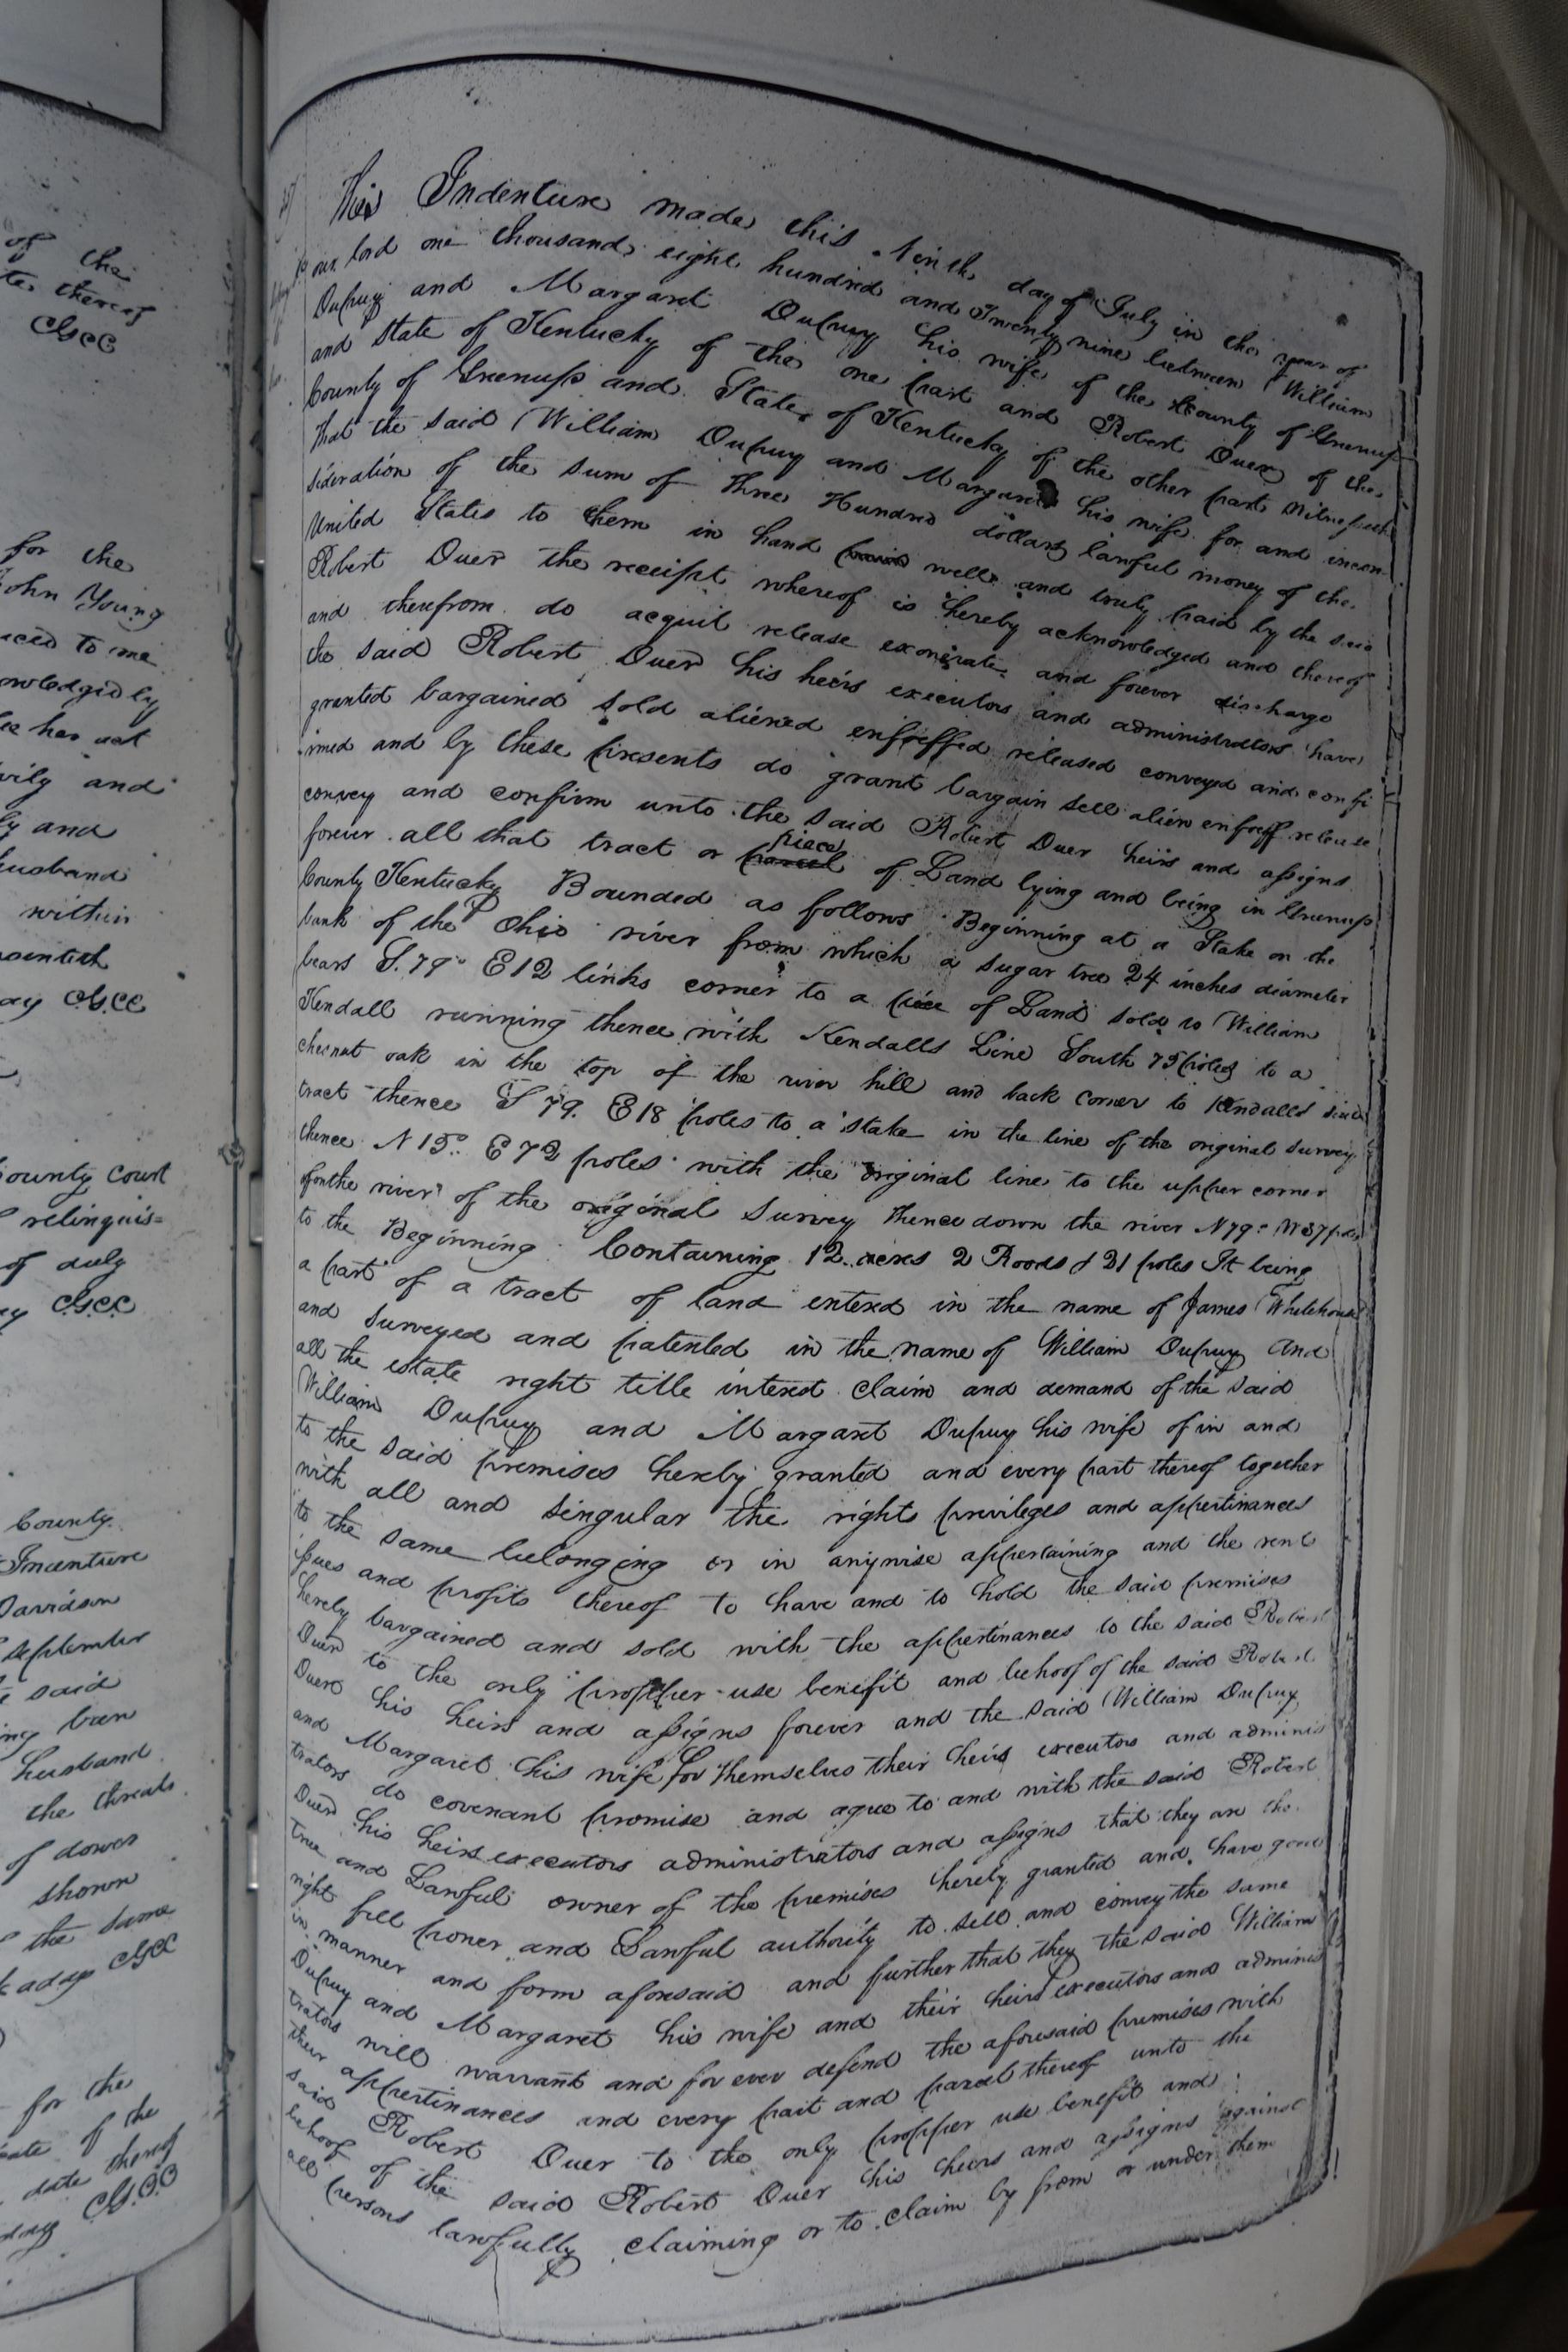 of the
thereof
CGCC
for the
John Young
uced to me
owledged by
he has not
rily and
ly and
husband
within
pointeth
ay CGCC
County Court
relinquis=
of duly
CGCC
County
Indenture
Davidson
September
said
ing been
husband
the threats
of dower
shown
the same
aday CGCC
for the
date of the
date thereof
This Indenture made this Ninth day of July in the year of
our lord one thousand eight hundred and Twenty nine between William
Dupuy and Margaret Dupuy his wife of the County of Greenup
and State of Kentucky of the one part and Robert Duer of the
County of Greenup and State of Kentucky of the other part Witnesseth
that the said William Dupuy and Margaret his wife for and incon-
sideration of the sum of Three Hundred dollars lawful money of the
United States to them in hand well and truly paid by the said
Robert Duer the receipt whereof is hereby acknowledged and thereof
and therefrom do acquit release exonerate and forever discharge
the said Robert Duer his heirs executors and administrators have
granted bargained sold aliened enfeoffed released conveyed and confi
irmed and by these presents do grant bargain sell alien enfeoff release
convey and confirm unto the said Robert Duer heirs and assigns
forever all that tract or parcel piece of Land lying and being in Greenup
County Kentucky Bounded as follows Beginning at a Stake on the
bank of the Ohio river from which a sugar tree 24 inches diameter
bears S. 79° E 12 links corner to a piece of Land sold to William
Kendall running thence with Kendalls Line South 75 poles to a
chesnut oak in the top of the river hill and back corner to Kendalls said
tract thence S 79. E 18 poles to a stake in the line of the original survey
thence N 15° E 72 poles with the original line to the upper corner
of on the river of the original Survey thence down the river N 79° W 37 pols
to the Beginning Containing 12 acres 2 Roods & 21 poles It being
a part of a tract of land entered in the name of James Whitehouse
and surveyed and patented in the name of William Dupuy And
all the estate right title interest claim and demand of the said
William Dupuy and Margaret Dupuy his wife of in and
to the said premises hereby granted and every part thereof together
with all and singular the rights privileges and appertinances
to the same belonging or in anywise appertaining and the rent
issues and profits thereof To have and to hold the said premises
hereby bargained and sold with the appertinances to the said Robert
Duer to the only propper use benefit and behoof of the said Robert
Duer his heirs and assigns forever and the said William Dupuy
and Margaret his wife for themselves their heirs executors and adminis
trators do covenant promise and agree to and with the said Robert
Duer his heirs executors administrators and assigns that they are the
true and Lawful owner of the premises hereby granted and have good
right full power and Lawful authority to sell and convey the same
in manner and form aforesaid and further that they the said William
Dupuy and Margaret his wife and their heirs executors and adminis
trators will warrant and for ever defend the aforesaid premises with
their appertinances and every part and parcel thereof unto the
said Robert Duer to the only propper use benefit and
behoof of the said Robert Duer his heirs and assigns against
all persons lawfully claiming or to claim by from or under them